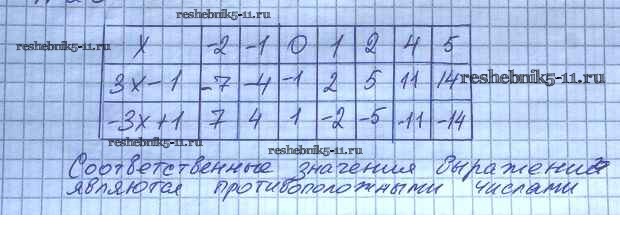 reshebnik5-11.ru
reshebnik5-11.ru
x -2 -1 0 1 2 4 5
3x-1 -7 -4 -1 2 5 11 14
reshebnik5-11.ru
-3x+1 7 4 1 -2 -5 -11 -14
reshebnik5-11.ru
reshebnik5-11.ru
Соответственные значения выражений
являются противоположными числами